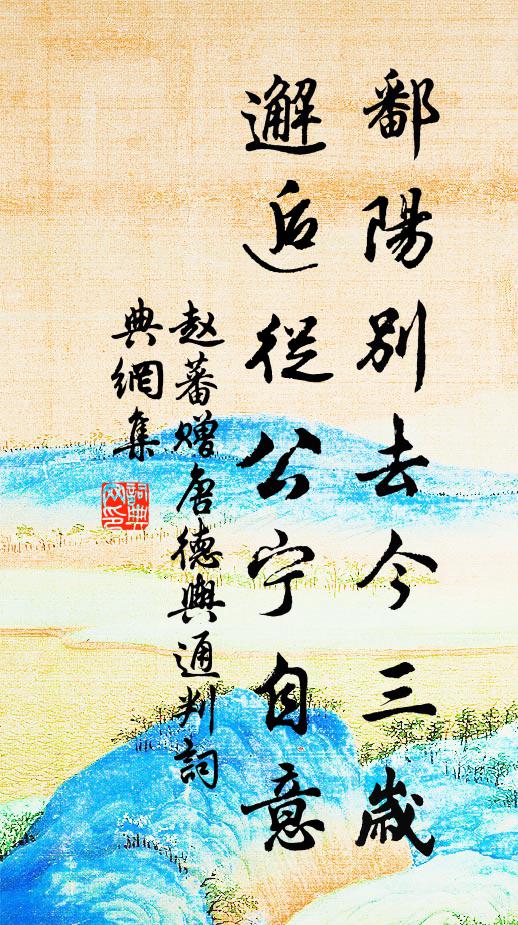 鄱陽別去今三歲
邂逅從公宁自意
赵蕃赠唐德興通判詞
典網集
詞典网印